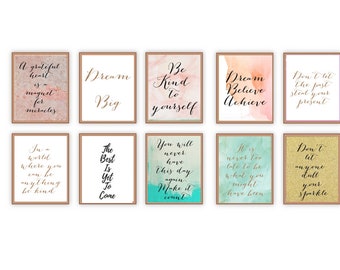 A grateful
heart
is a
magnet
for
miracles
Dream
Big
Be
Kind
to
yourself
Dream
Believe
Achieve
Don't let
the past
steal your
present
In a
world
where you
can be
anything
be kind
The
Best
Is
Yet
To
Come
You will
never
have
this day
again
Make it
count
It is
never too
late to be
what you
might
have been
Don't
let
anyone
dull your
sparkle